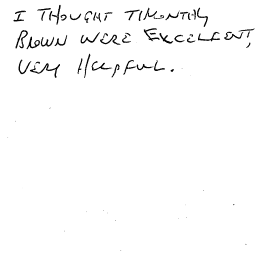 I THOUGHT TIMONTHY
BROWN WERE EXCELLENT,
VERY HELPFUL.